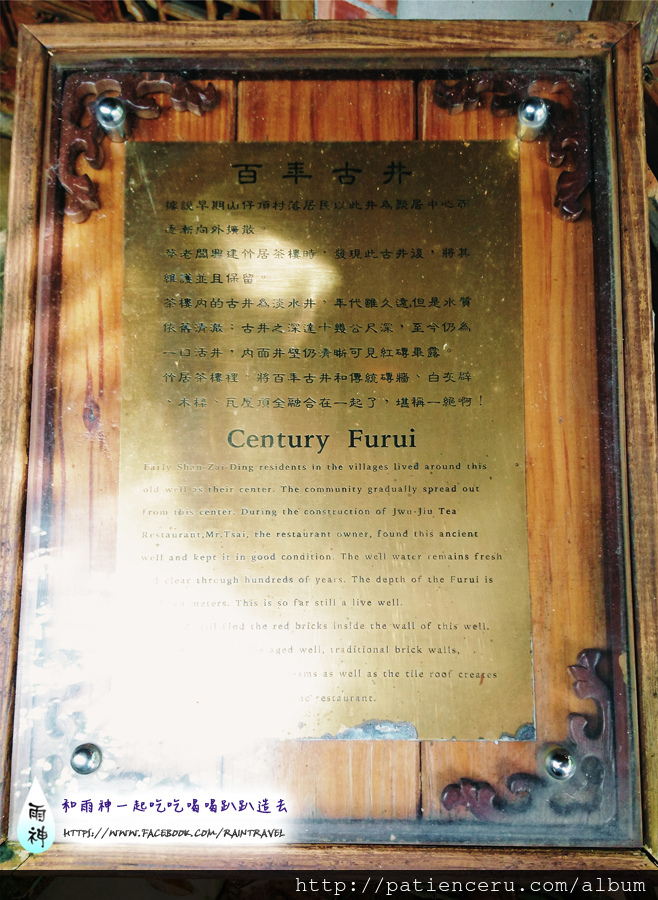 百年古井
據說早期山仔頂村落居民以此井為聚居中心而
逐漸向外擴散
蔡老闆興建竹居茶樓時，發現此古井後，將其
維護並且保留。
茶樓內的古井為淡水井，年代雖久遠,但是水質
依舊清澈；古井之深達十幾公尺深，至今仍為
一口活井，內面井壁仍清晰可見紅磚畢露。
竹居茶樓裡，將百年古井和傳統磚牆、白灰壁
、木樑、瓦屋頂全融合在一起了，堪稱一絕啊！
Century Furui
Early Shan-Zai-Ding residents in the villages lived around this
old well as their center. The community gradually spread out
from this center. During the construction of Jwu-Jiu Tea
Restaurant,Mr.Tsai, the restaurant owner, found this ancient
well and kept it in good condition. The well water remains fresh
clear through hundreds of years. The depth of the Furui is
meters. This is so far still a live well.
find the red bricks inside the wall of this well.
aged well, traditional brick walls,
as well as the tile roof creates
restaurant.
雨神
和雨神一起吃吃喝喝趴趴造去
https://www.facebook.com/raintravel
http://patienceru.com/album